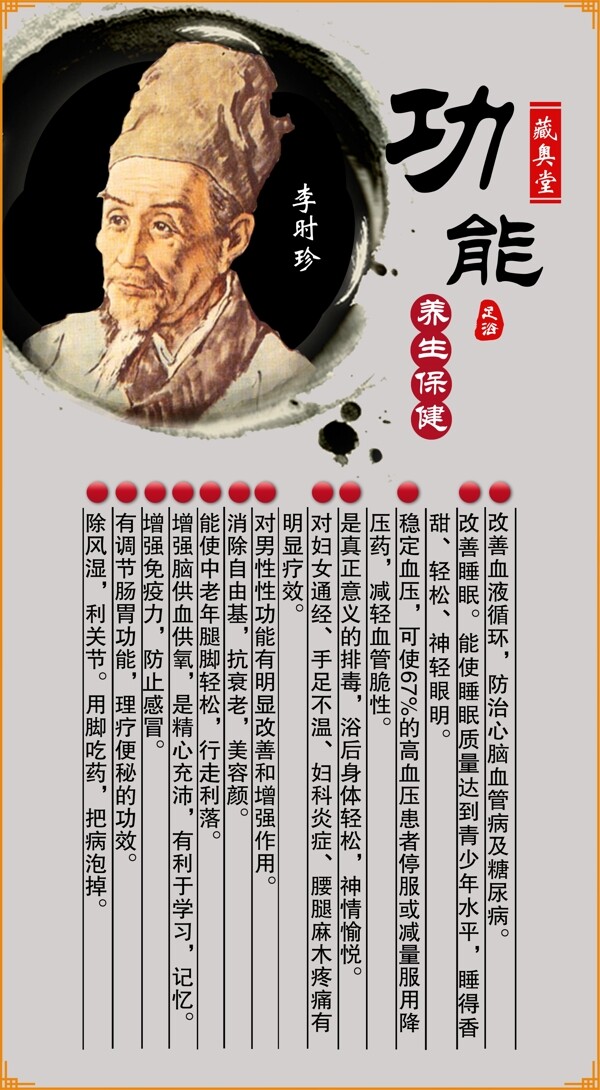 藏奥堂
功能
足浴
养生保健
李时珍
改善血液循环，防治心脑血管病及糖尿病。
改善睡眠。能使睡眠质量达到青少年水平，睡得香
甜、轻松、神轻眼明。
稳定血压，可使67%的高血压患者停服或减量服用降
压药，减轻血管脆性。
是真正意义的排毒，浴后身体轻松，神情愉悦。
对妇女通经、手足不温、妇科炎症、腰腿麻木疼痛有
明显疗效。
对男性性功能有明显改善和增强作用。
消除自由基，抗衰老，美容颜。
能使中老年腿脚轻松，行走利落。
增强脑供血供氧，是精心充沛，有利于学习，记忆。
增强免疫力，防止感冒。
有调节肠胃功能，理疗便秘的功效。
除风湿，利关节。用脚吃药，把病泡掉。